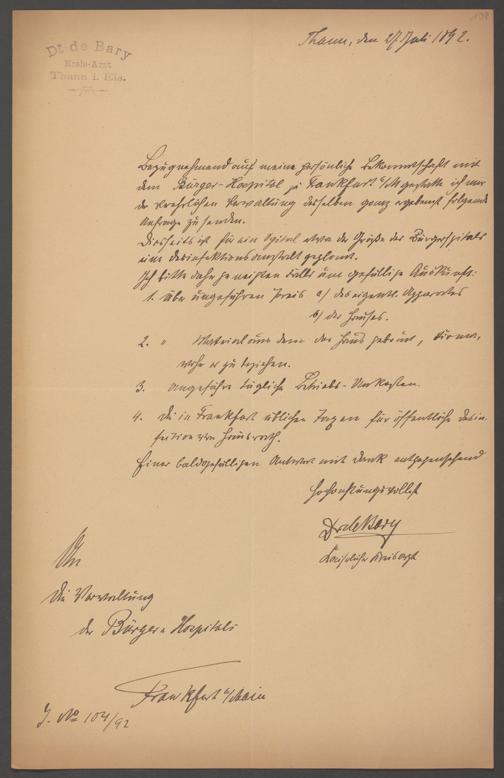 Dr. de Bary
Kreis-Arzt
Thann i. Els.
Thann, den 27 Juli 1892.
Bezugnehmend auf meine persönliche Bekanntschaft mit
dem Bürger-Hospital zu Frankfurt a/M gestatte ich mir
der Verwaltung desselben ganz ergebenst folgende
Anfrage zu senden.
Diesseits ist für ein Spital etwa der Größe des Bürgerspitals
eine Desinfektionsanstalt geplant.
Ich bitte daher um gefällige Auskunft:
1. über ungefähren Preis a/ des eigentl. Apparates
b/ des Hauses.
2. " Material aus dem das Haus gebaut, Firma,
woher er zu beziehen.
3. ungefähre tägliche Betriebs-Unkosten.
4. die in Frankfurt üblichen Taxen für öffentliche Desin-
fektion von Hausrath.
Einer baldgefälligen Antwort mit Dank entgegensehend
Hochachtungsvollst
Dr de Bary
Kaiserlicher Kreisarzt
An
die Verwaltung
des Bürger-Hospitals
Frankfurt a/Main
J. No 104/92